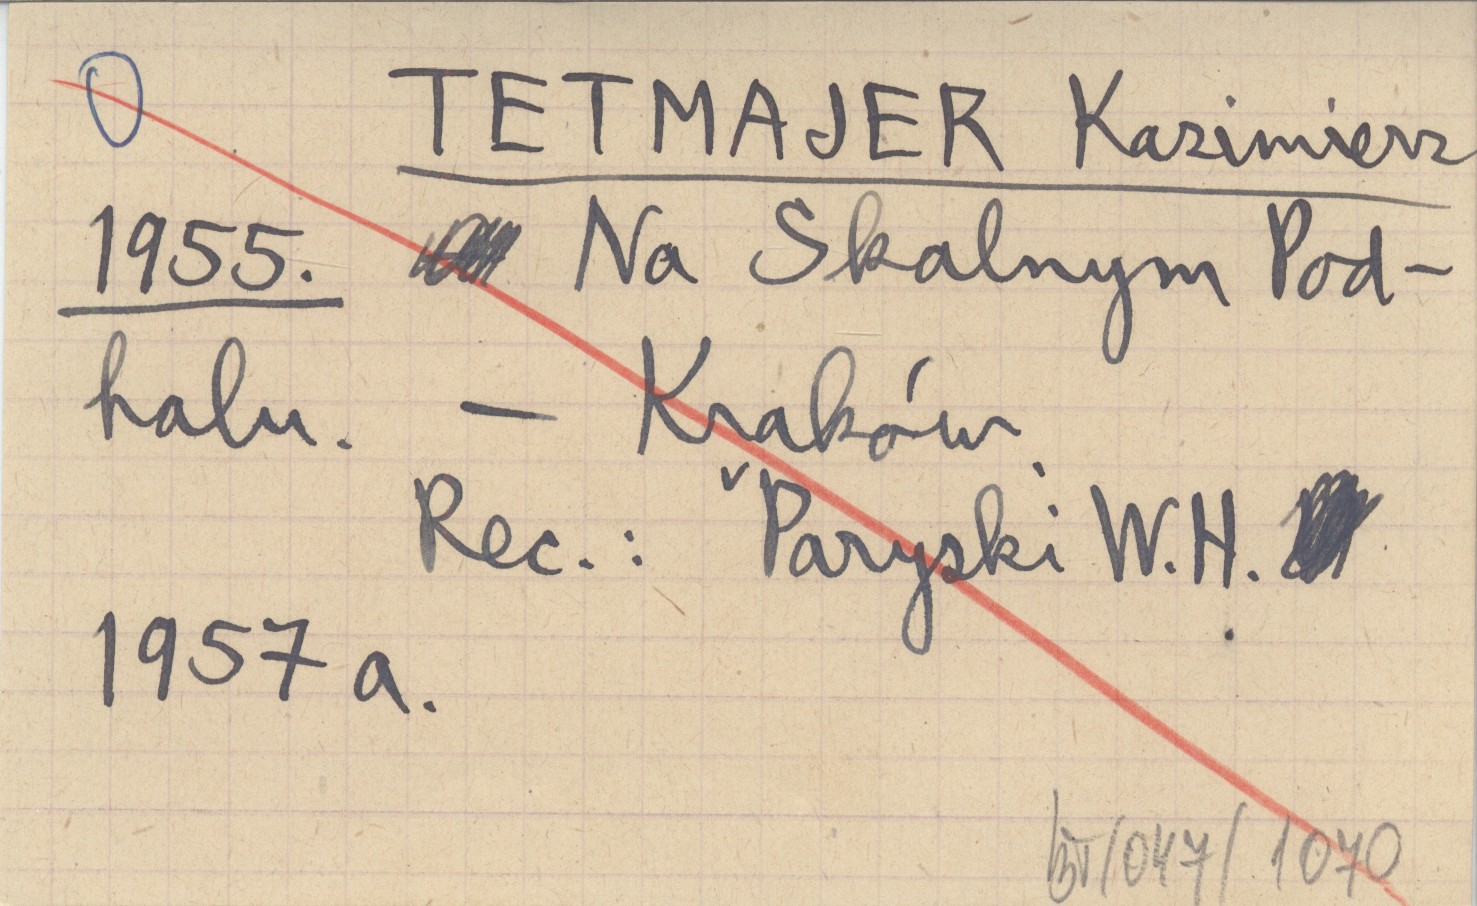 TETMAJER Kazimierz
1955. Na Skalnym Pod-
halu. — Kraków.
Rec.: Paryski W.H.
1957 a.
/047/1070